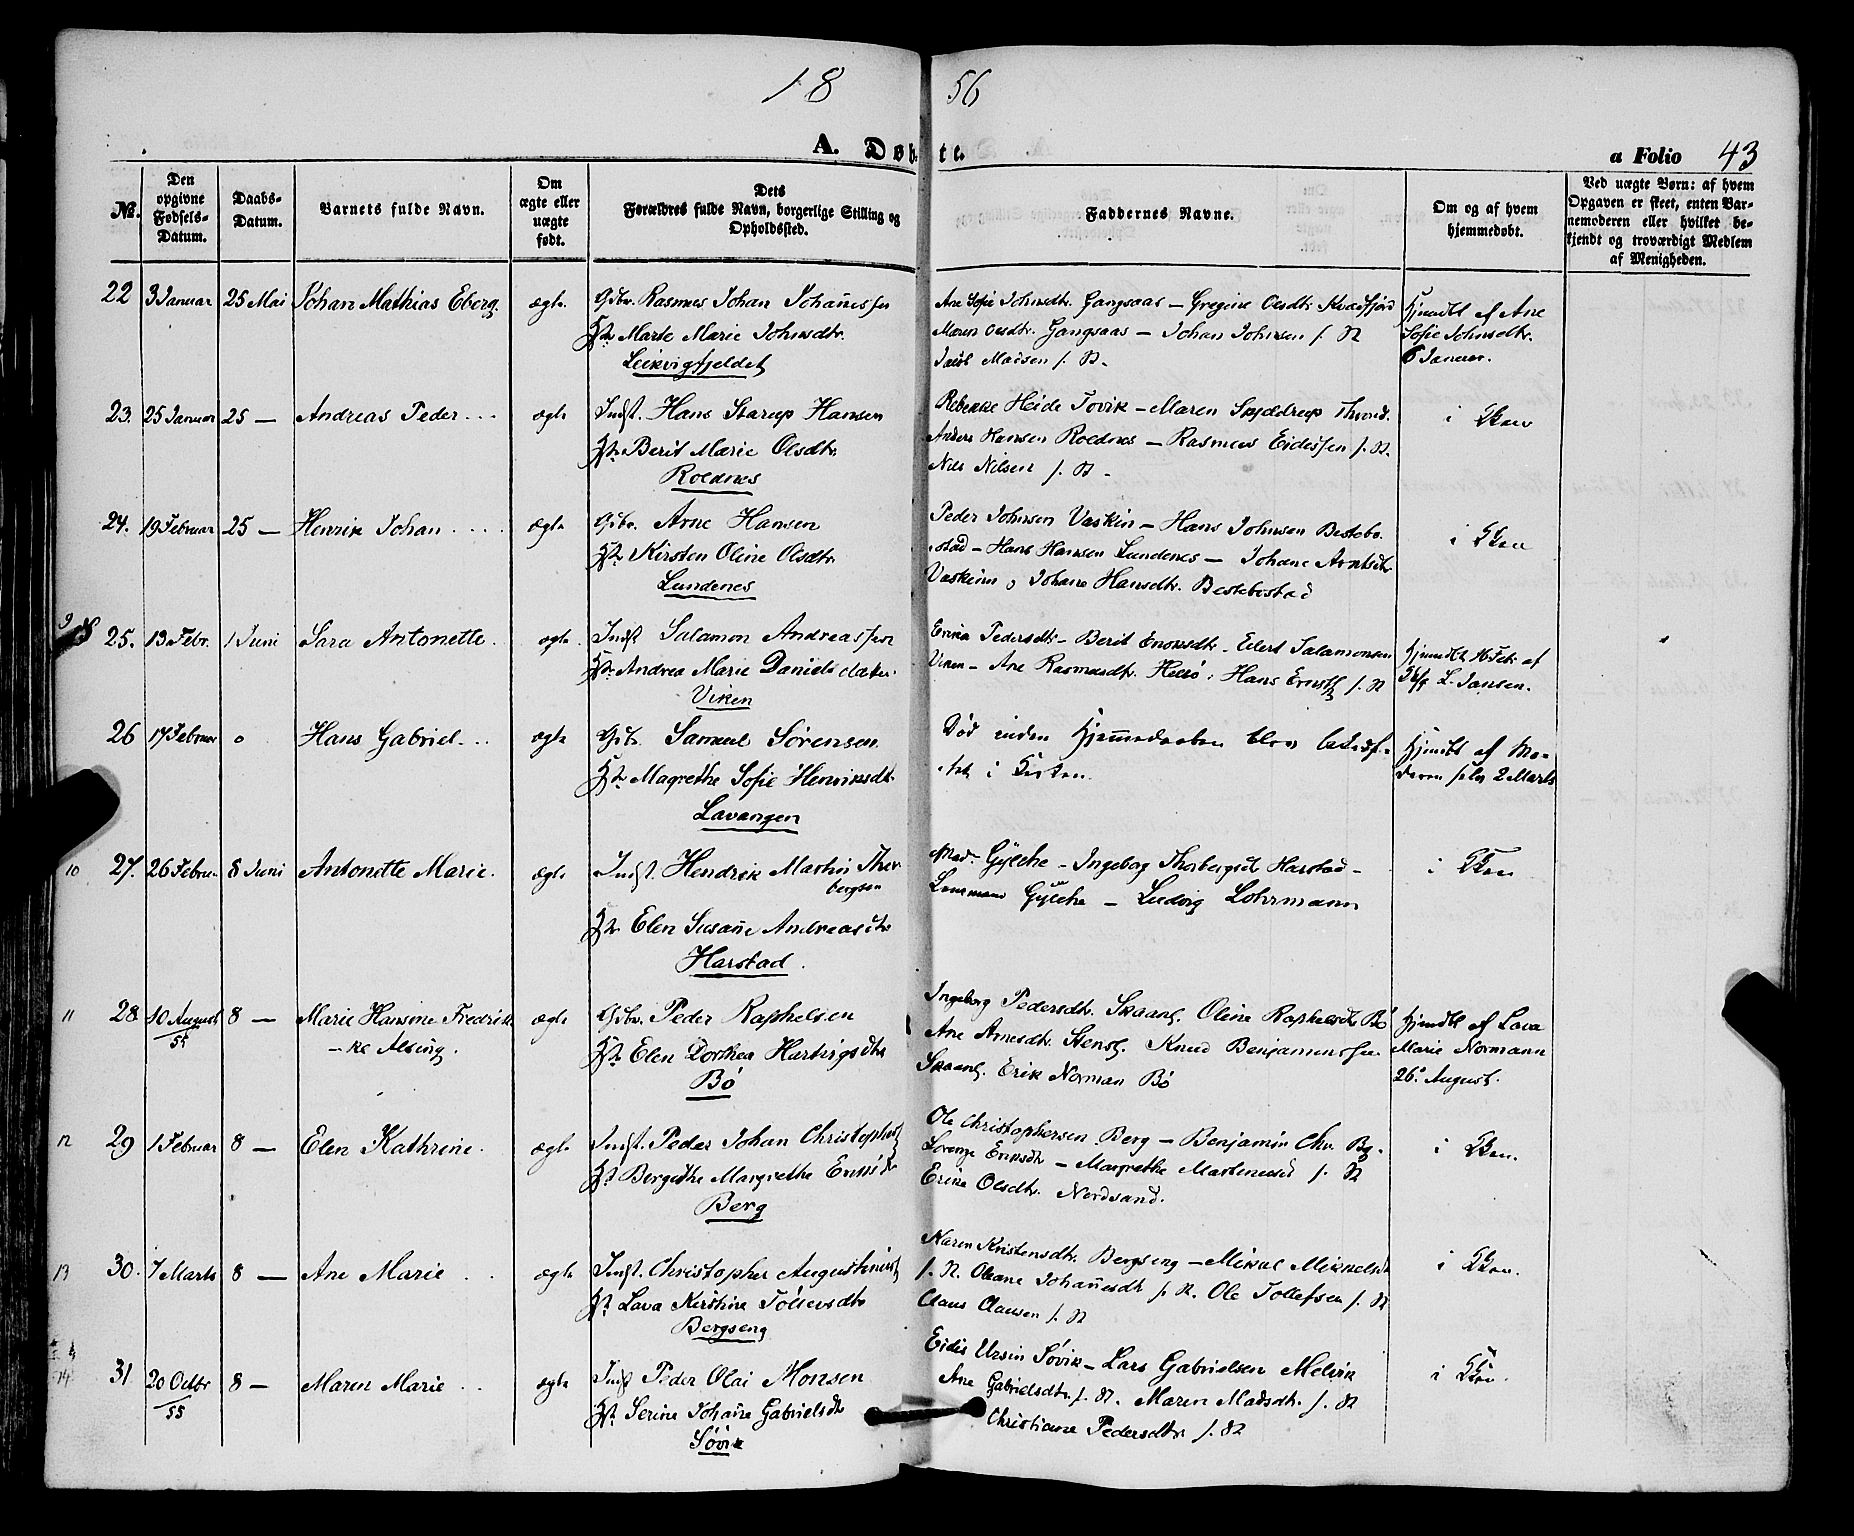 18 56
A. Døbte.
a Folio 43
No. | Den opgivne Fødsels-Datum. | Daabs-Datum. | Barnets fulde Navn. | Om ægte eller uægte født. | Dets Forældres fulde Navn, borgerlige Stilling og Opholdssted. | Faddernes Navne. | Om og af hvem hjemmedøbt. | Ved uægte Børn: af hvem Opgaven er skeet, enten Barnemoderen eller hvilket bekjendt og troværdigt Medlem af Menigheden.
22 3 Januar 25 Mai Johan Mathias Eberg. ægte Gbr. Rasmus Johan Johannessen
Hst. Marte Marie Johnsdtr.
Leikvigfjeldet
Ane Sofie Johnsdtr. Gangsaas – Gregine Olsdtr. Kvæfjord
Maren Olsdtr. Gangsaas – Johan Johnsen s. St.
Jacob Madsen s. St.
Hjmdbt af Ane
Sofie Johnsdtr.
6 Januar.
23. 25 Januar 25 — Andreas Peder ægte Indst. Hans Starup Hansen
Hst. Berit Marie Olsdtr.
Roldnes
Rebekke Heide Tovik – Maren Skjeldrup Thrond.
Anders Hansen Roldnes – Rasmus Eidissen s. St.
Nils Nilsen s. St.
i Kken
24. 19 Februar 25 — Henrik Johan ægte Gbr. Arne Hansen
Hst. Kirsten Oline Olsdtr.
Lundenes
Peder Johnsen Vaskin – Hans Johnsen Bestebo-
stad – Hans Hansen Lundenes – Johane Arntsdtr.
Vaskinn, Johane Hansdtr. Bestebostad
i Kken
9 25. 13 Febr. 1 Juni Sara Antonette. ægte Indst Salamon Andreassen
Hst. Andrea Marie Danielsdatter.
Viken
Erika Pedersdtr. – Berit Enoksdtr. – Edert Salamonsen
Viken – Ane Rasmusdtr. Hellø, Hans Ernsts. s. St.
Hjmdbt 16 Febr af
L. Jansen.
26 17 Februar o Hans Gabriel ægte Gbr. Samuel Sørensen
Hst. Magrethe Sofie Henriksdtr.
Lavangen
Død inden Hjemmedaaben blev bekræf-
tet i Kirken.
Hjmdbt af Mo-
deren selv 2 Marts
10 27. 26 Februar 8 Juni Antonette Marie. ægte Indst. Hendrik Martin Thor-
bergsen
Hst. Elen Susanne Andreasdtr
Harstad.
Mad. Gylche – Ingeborg Thorbergsdt Harstad –
Lensmand Gylche – Ludvig Lohrmann
i Kken
11 28 10 August 8 — Marie Hansine Fredrik- ægte Gbr. Peder Raphelsen
55 ke Alsing.
Hst. Elen Dorthea Hartvigsdtr
Bø
Ingeborg Pedersdtr. Skaanl. Oline Raphelsdtr Bø
Ane Arnesdtr. Stensl. Knud Benjaminssen
Skaanl. Erik Norman Bø
Hjmdbt af Lava
Marie Normann
26. August.
12 29 1 Februar 8 — Elen Kathrine. ægte Indst. Peder Johan Christophers.
Hst Bergithe Margrethe Eriksdtr
Berg
Ole Christophersen Berg – Benjamin Chr. Bg.
Lorense Eriksdtr – Margrethe Martinusd s. St
Erika Olsdtr. Nordsand.
i Kken.
13 30. 7 Marts 8 — Ane Marie ægte Indst. Christopher Augustinus.
Hst Lava Kirstine Tollevsdtr
Bergseng
Karen Kristensdtr. Bergseng – Mikal Mikkelsdtr
s. St. Oleane Johannesdtr s. St. Ole Tollefsen s. St
Claus Clausen s. St
i Kken.
14 31 20 Octbr 8 — Maren Marie ægte Indst Peder Olai Monsen
55
Hst. Serine Johanne Gabrielsdtr
Søvik
Eidis Ursin Søvik – Lars Gabrielsen Melvik
Ane Gabrielsdtr s. St. Maren Madsdtr. s. St
Christiane Pedersdtr. s. St
i Kken.